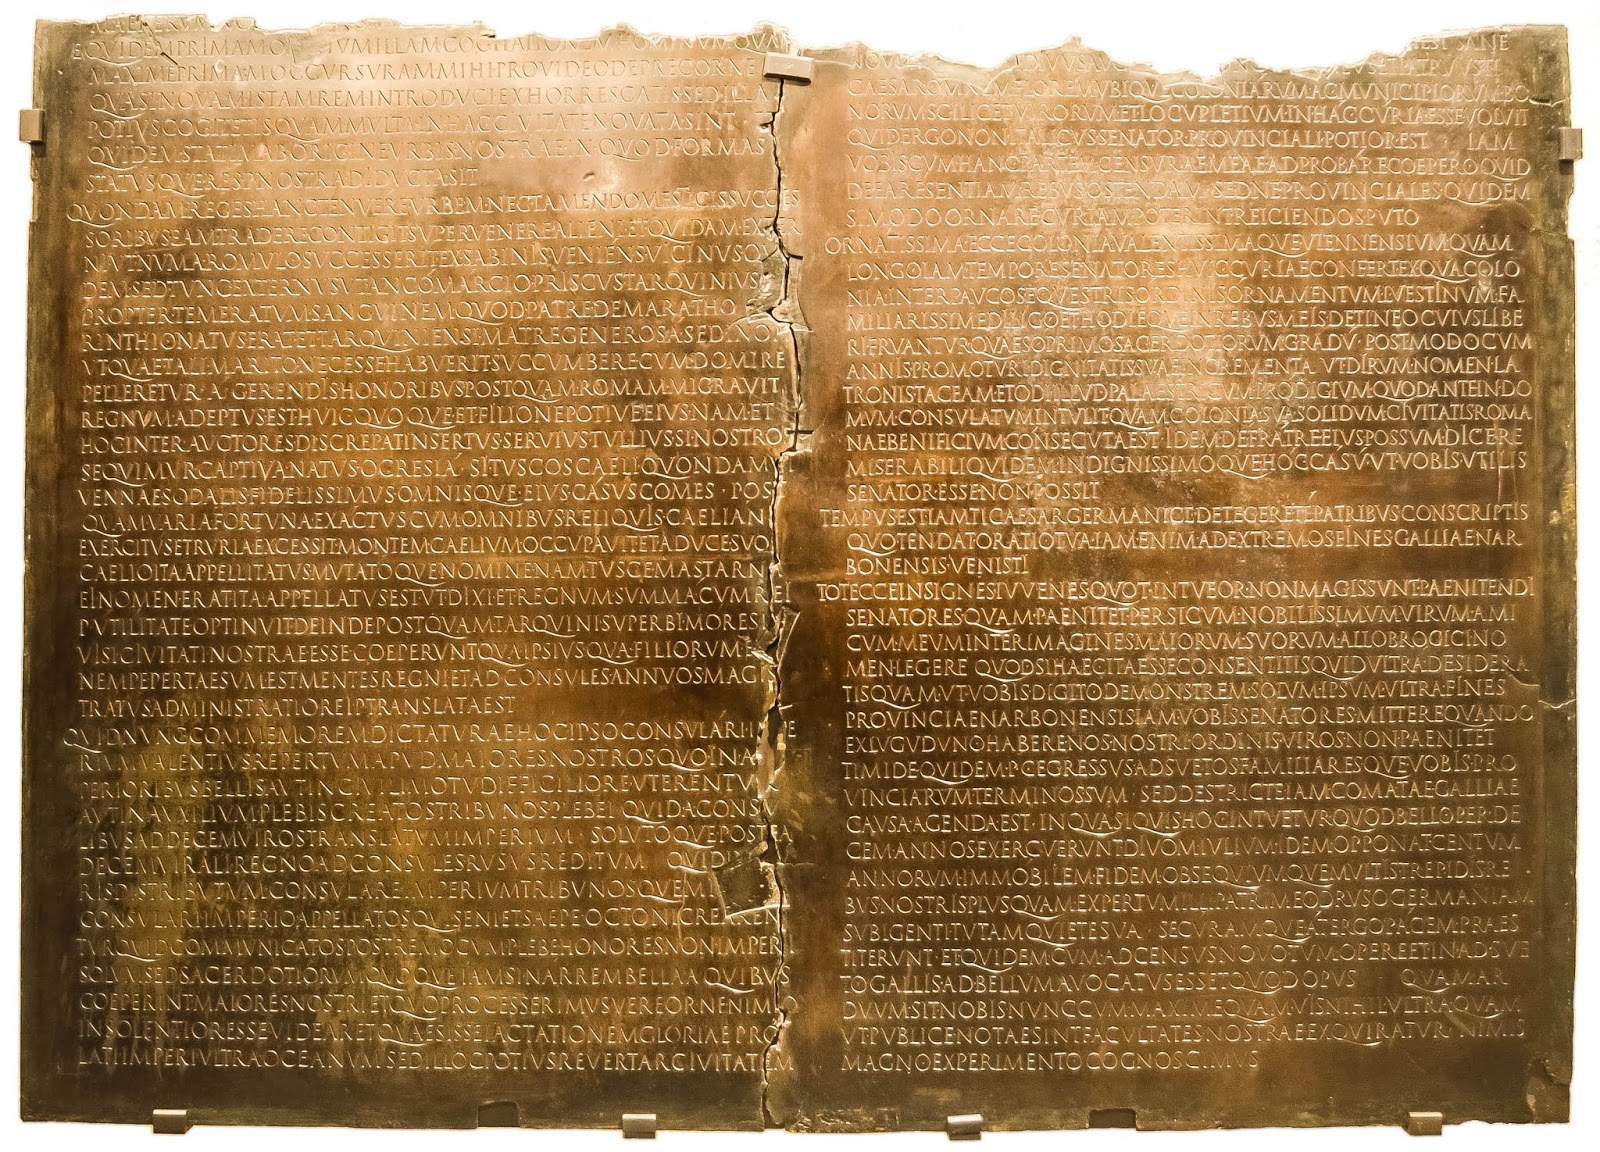 MAE RERVM
EQVIDEM PRIMAM OMNIVM ILLAM COGITATIONEM HOMINVM QVAM
MAXIME PRIMAM OCCVRSVRAM MIHI PROVIDEO DEPRECOR NE
QVASI NOVAM ISTAM REM INTRODVCI EXHORRESCATIS SED ILLA
POTIVS COGITETIS QVAM MVLTA IN HAC CIVITATE NOVATA SINT
QVIDEM STATIM AB ORIGINE VRBIS NOSTRAE IN QVOD FORMAS
STATVSQVE RES P NOSTRA DIDVCTA SIT
QVONDAM REGES HANC TENVERE VRBEM NEC TAMEN DOMESTICIS SVCCES
SORIBVS EAM TRADERE CONTIGIT SVPERVENERE ALIENI ET QVIDAM EXTER
NI VT NVMA ROMVLO SVCCESSERIT EX SABINIS VENIENS VICINVS QVI
DEM SED TVNC EXTERNVS VT ANCO MARCIO PRISCVS TARQVINIVS
PROPTER TEMERATVM SANGVINEM QVOD PATRE DEMARATHO CO
RINTHIO NATVS ERAT ET TARQVINIENSI MATRE GENEROSA SED INOPI
VT QVAE TALI MARITO NECESSE HABVERIT SVCCVMBERE CVM DOMI RE
PELLERETVR A GERENDIS HONORIBVS POSTQVAM ROMAM MIGRAVIT
REGNVM ADEPTVS EST HVIC QVOQVE ET FILIO NEPOTIVE EIVS NAM ET
HOC INTER AVCTORES DISCREPAT INSERTVS SERVIVS TVLLIVS SI NOSTROS
SEQVIMVR CAPTIVA NATVS OCRESIA SI TVSCOS CAELI QVONDAM VI
VENNAE SODALIS FIDELISSIMVS OMNISQVE EIVS CASVS COMES POST
QVAM VARIA FORTVNA EXACTVS CVM OMNIBVS RELIQVIS CAELIANI
EXERCITVS ETRVRIA EXCESSIT MONTEM CAELIVM OCCVPAVIT ET A DVCE SVO
CAELIO ITA APPELLITATVS MVTATOQVE NOMINE NAM TVSCE MASTARNA
EI NOMEN ERAT ITA APPELLATVS EST VT DIXI ET REGNVM SVMMA CVM REI
P VTILITATE OPTINVIT DEINDE POSTQVAM TARQVINI SVPERBI MORES IN
VISI CIVITATI NOSTRAE ESSE COEPERVNT QVA IPSIVS QVA FILIORVM EIVS
NEMPE PERTAESVM EST MENTES REGNI ET AD CONSVLES ANNVOS MAGIS
TRATVS ADMINISTRATIO REI P TRANSLATA EST
QVID NVNC COMMEMOREM DICTATVRAE HOC IPSO CONSVLARI IMPE
RIVM VALENTIVS REPERTVM APVD MAIORES NOSTROS QVO IN AS
PERIORIBVS BELLIS AVT IN CIVILI MOTV DIFFICILIORE VTERENTVR
AVT IN AVXILIVM PLEBIS CREATOS TRIBVNOS PLEBEI QVID A CONSV
LIBVS AD DECEMVIROS TRANSLATVM IMPERIVM SOLVTOQVE POSTEA
DECEMVIRALI REGNO AD CONSVLES RVSVS REDITVM QVID IN
RIS DISTRIBVTVM CONSVLARE IMPERIVM TRIBVNOSQVE M
CONSVLARI IMPERIO APPELLATOS QVI SENI ET SAEPE OCTONI CREAREN
TVR QVID COMMVNICATOS POSTREMO CVM PLEBE HONORES NON IMPERI
SOLVM SED SACERDOTIORVM QVOQVE IAM SI NARREM BELLA A QVIBVS
COEPERINT MAIORES NOSTRI ET QVO PROCESSERIMVS VEREOR NE NIMIO
INSOLENTIOR ESSE VIDEAR ET QVAESISSE IACTATIONEM GLORIAE PRO
LATI IMPERI VLTRA OCEANVM SED ILLOC POTIVS REVERTAR CIVITATEM
EST SANE
NOVO DIVVS AVG PATRVVS TI
CAESAR OMNEM FLOREM VBIQVE COLONIARVM AC MVNICIPIORVM BO
NORVM SCILICET VIRORVM ET LOCVPLETIVM IN HAC CVRIA ESSE VOLVIT
QVID ERGO NON ITALICVS SENATOR PROVINCIALI POTIOR EST IAM
VOBIS CVM HANC PARTEM CENSVRAE MEAE ADPROBARE COEPERO QVID
DE EA RE SENTIAM REBVS OSTENDAM SED NE PROVINCIALES QVIDEM
SI MODO ORNARE CVRIAM POTERINT REICIENDOS PVTO
ORNATISSIMA ECCE COLONIA VALENTISSIMAQVE VIENNENSIVM QVAM
LONGO IAM TEMPORE SENATORES HVIC CVRIAE CONFERT EX QVA COLO
NIA INTER PAVCOS EQVESTRIS ORDINIS ORNAMENTVM L VESTINVM FA
MILIARISSIME DILIGO ET HODIEQVE IN REBVS MEIS DETINEO CVIVS LIBE
RI FRVANTVR QVAESO PRIMO SACERDOTIORVM GRADV POST MODO CVM
ANNIS PROMOTVRI DIGNITATIS SVAE INCREMENTA VT DIRVM NOMEN LA
TRONIS TACEAM ET ODI ILLVD PALAESTRICVM PRODIGIVM QVOD ANTE IN DO
MVM CONSVLATVM INTVLIT QVAM COLONIA SVA SOLIDVM CIVITATIS ROMA
NAE BENIFICIVM CONSECVTA EST IDEM DE FRATRE EIVS POSSVM DICERE
MISERABILI QVIDEM INDIGNISSIMOQVE HOC CASV VT VOBIS VTILIS
SENATOR ESSE NON POSSIT
TEMPVS EST IAM TI CAESAR GERMANICE DETEGERE TE PATRIBVS CONSCRIPTIS
QVO TENDAT ORATIO TVA IAM ENIM AD EXTREMOS FINES GALLIAE NAR
BONENSIS VENISTI
TOT ECCE INSIGNES IVVENES QVOT INTVEOR NON MAGIS SVNT PAENITENDI
SENATORES QVAM PAENITET PERSICVM NOBILISSIMVM VIRVM AMI
CVM MEVM INTER IMAGINES MAIORVM SVORVM ALLOBROGICI NO
MEN LEGERE QVOD SI HAEC ITA ESSE CONSENTITIS QVID VLTRA DESIDERA
TIS QVAM VT VOBIS DIGITO DEMONSTREM SOLVM IPSVM VLTRA FINES
PROVINCIAE NARBONENSIS IAM VOBIS SENATORES MITTERE QVANDO
EX LVGVDVNO HABERE NOS NOSTRI ORDINIS VIROS NON PAENITET
TIMIDE QVIDEM P C EGRESSVS ADSVETOS FAMILIARESQVE VOBIS PRO
VINCIARVM TERMINOS SVM SED DESTRICTE IAM COMATAE GALLIAE
CAVSA AGENDA EST IN QVA SI QVIS HOC INTVETVR QVOD BELLO PER DE
CEM ANNOS EXERCVERVNT DIVOM IVLIVM IDEM OPPONAT CENTVM
ANNORVM IMMOBILEM FIDEM OBSEQVIVMQVE MVLTIS TREPIDIS RE
BVS NOSTRIS PLVS QVAM EXPERTVM ILLI PATRI MEO DRVSO GERMANIAM
SVBIGENTI TVTAM QVIETE SVA SECVRAMQVE A TERGO PACEM PRAES
TITERVNT ET QVIDEM CVM AD CENSVS NOVO TVM OPERE ET INADSVE
TO GALLIS AD BELLVM AVOCATVS ESSET QVOD OPVS QVAM AR
DVVM SIT NOBIS NVNC CVM MAXIME QVAMVIS NIHIL VLTRA QVAM
VT PVBLICE NOTAE SINT FACVLTATES NOSTRAE EXQVIRATVR NIMIS
MAGNO EXPERIMENTO COGNOSCIMVS